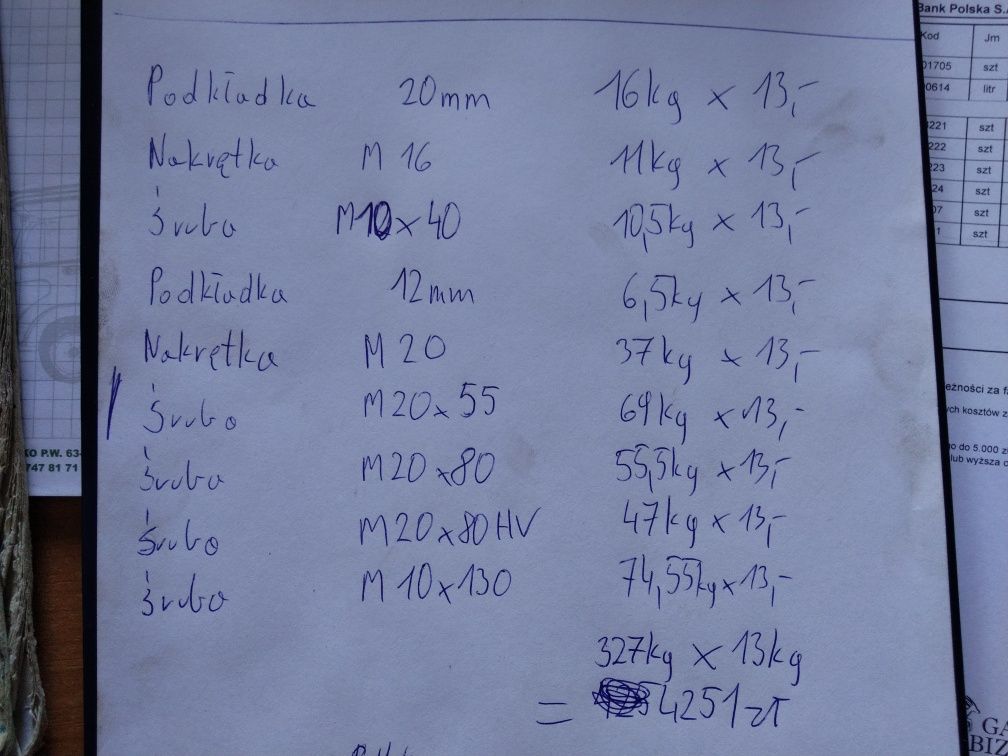 Bank Polska S.A
Kod Jm
01705 szt
0614 litr
221 szt
222 szt
223 szt
24 szt
07 szt
1 szt
eżności za f
ych kosztów z
o do 5.000 zł
lub wyższa o
KO P.W. 63-
747 81 71
Podkładka 20mm 16kg x 13,-
Nakrętka M 16 11kg x 13,-
Śruba M10x40 10,5kg x 13,-
Podkładka 12mm 6,5kg x 13,-
Nakrętka M 20 37kg x 13,-
Śruba M20x55 69kg x 13,-
Śruba M20x80 55,5kg x 13,-
Śruba M20x80HV 47kg x 13,-
Śruba M10x130 74,55kg x 13,-
327kg x 13kg
= 4251 zł
GA
BIZ